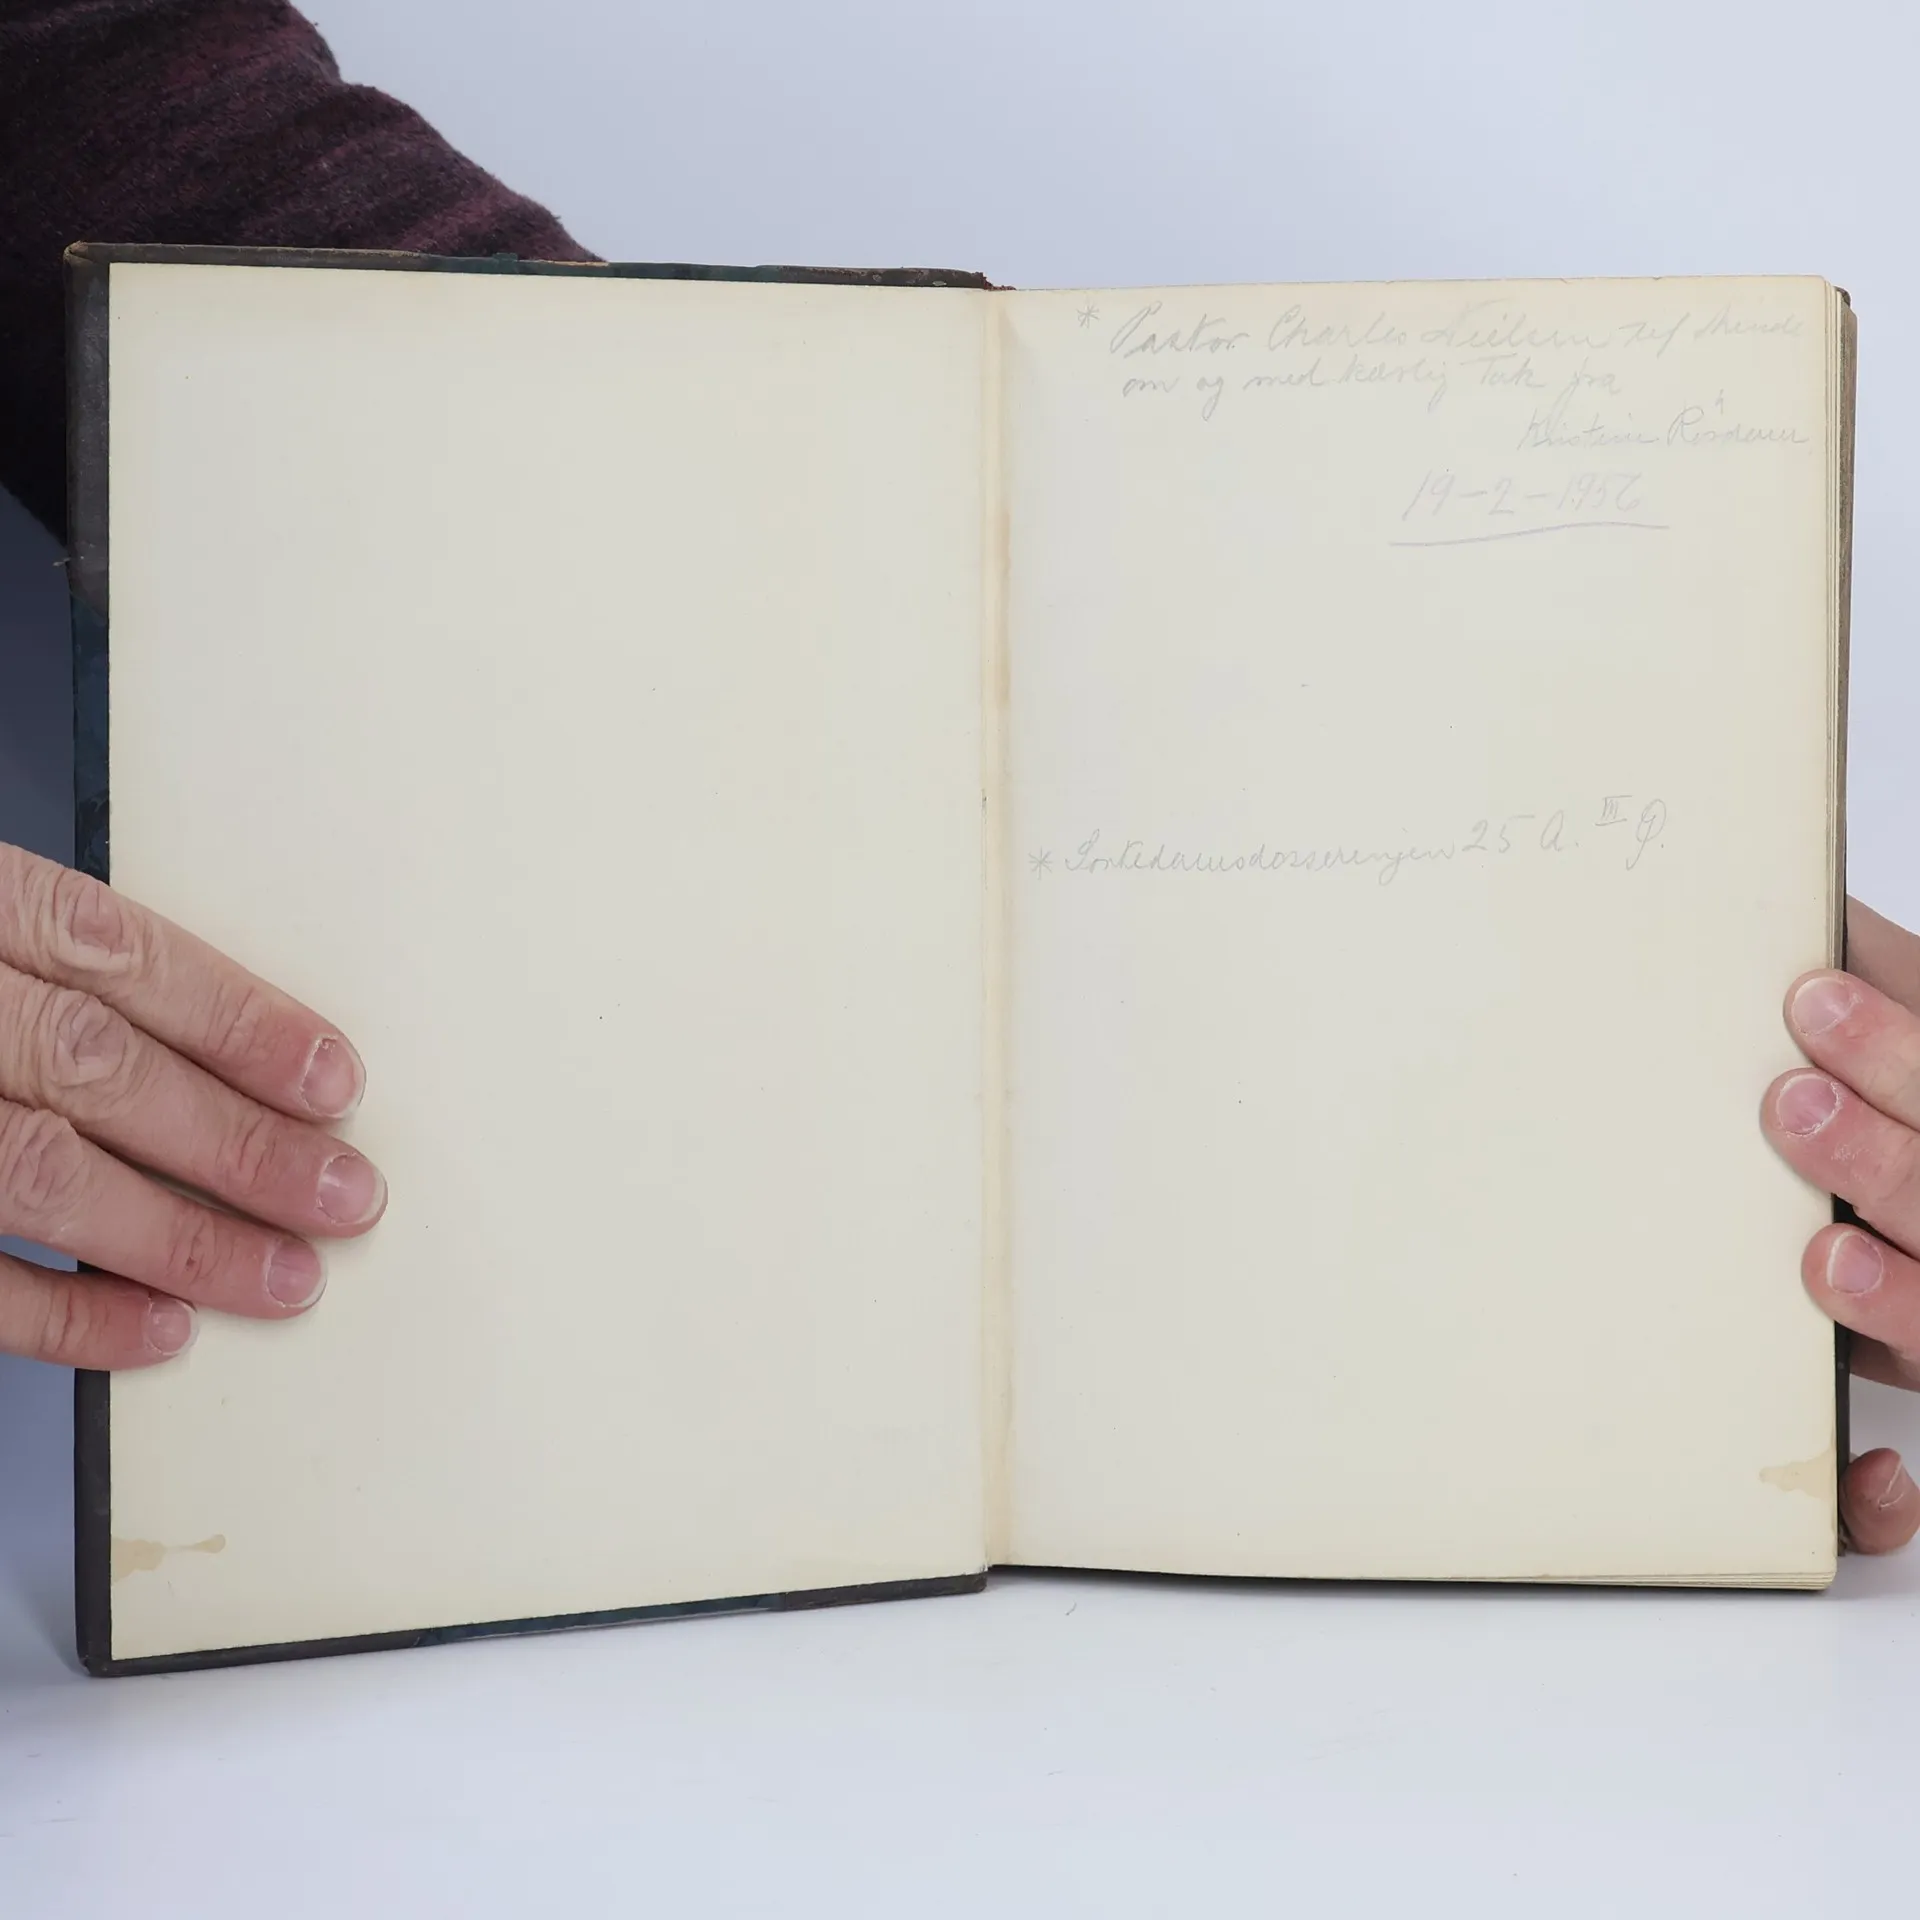 * Pastor Charles Nielsen til Minde
om og med kærlig Tak fra
Kristine
19-2-1956
* Sortedamsdosseringen 25 A. III